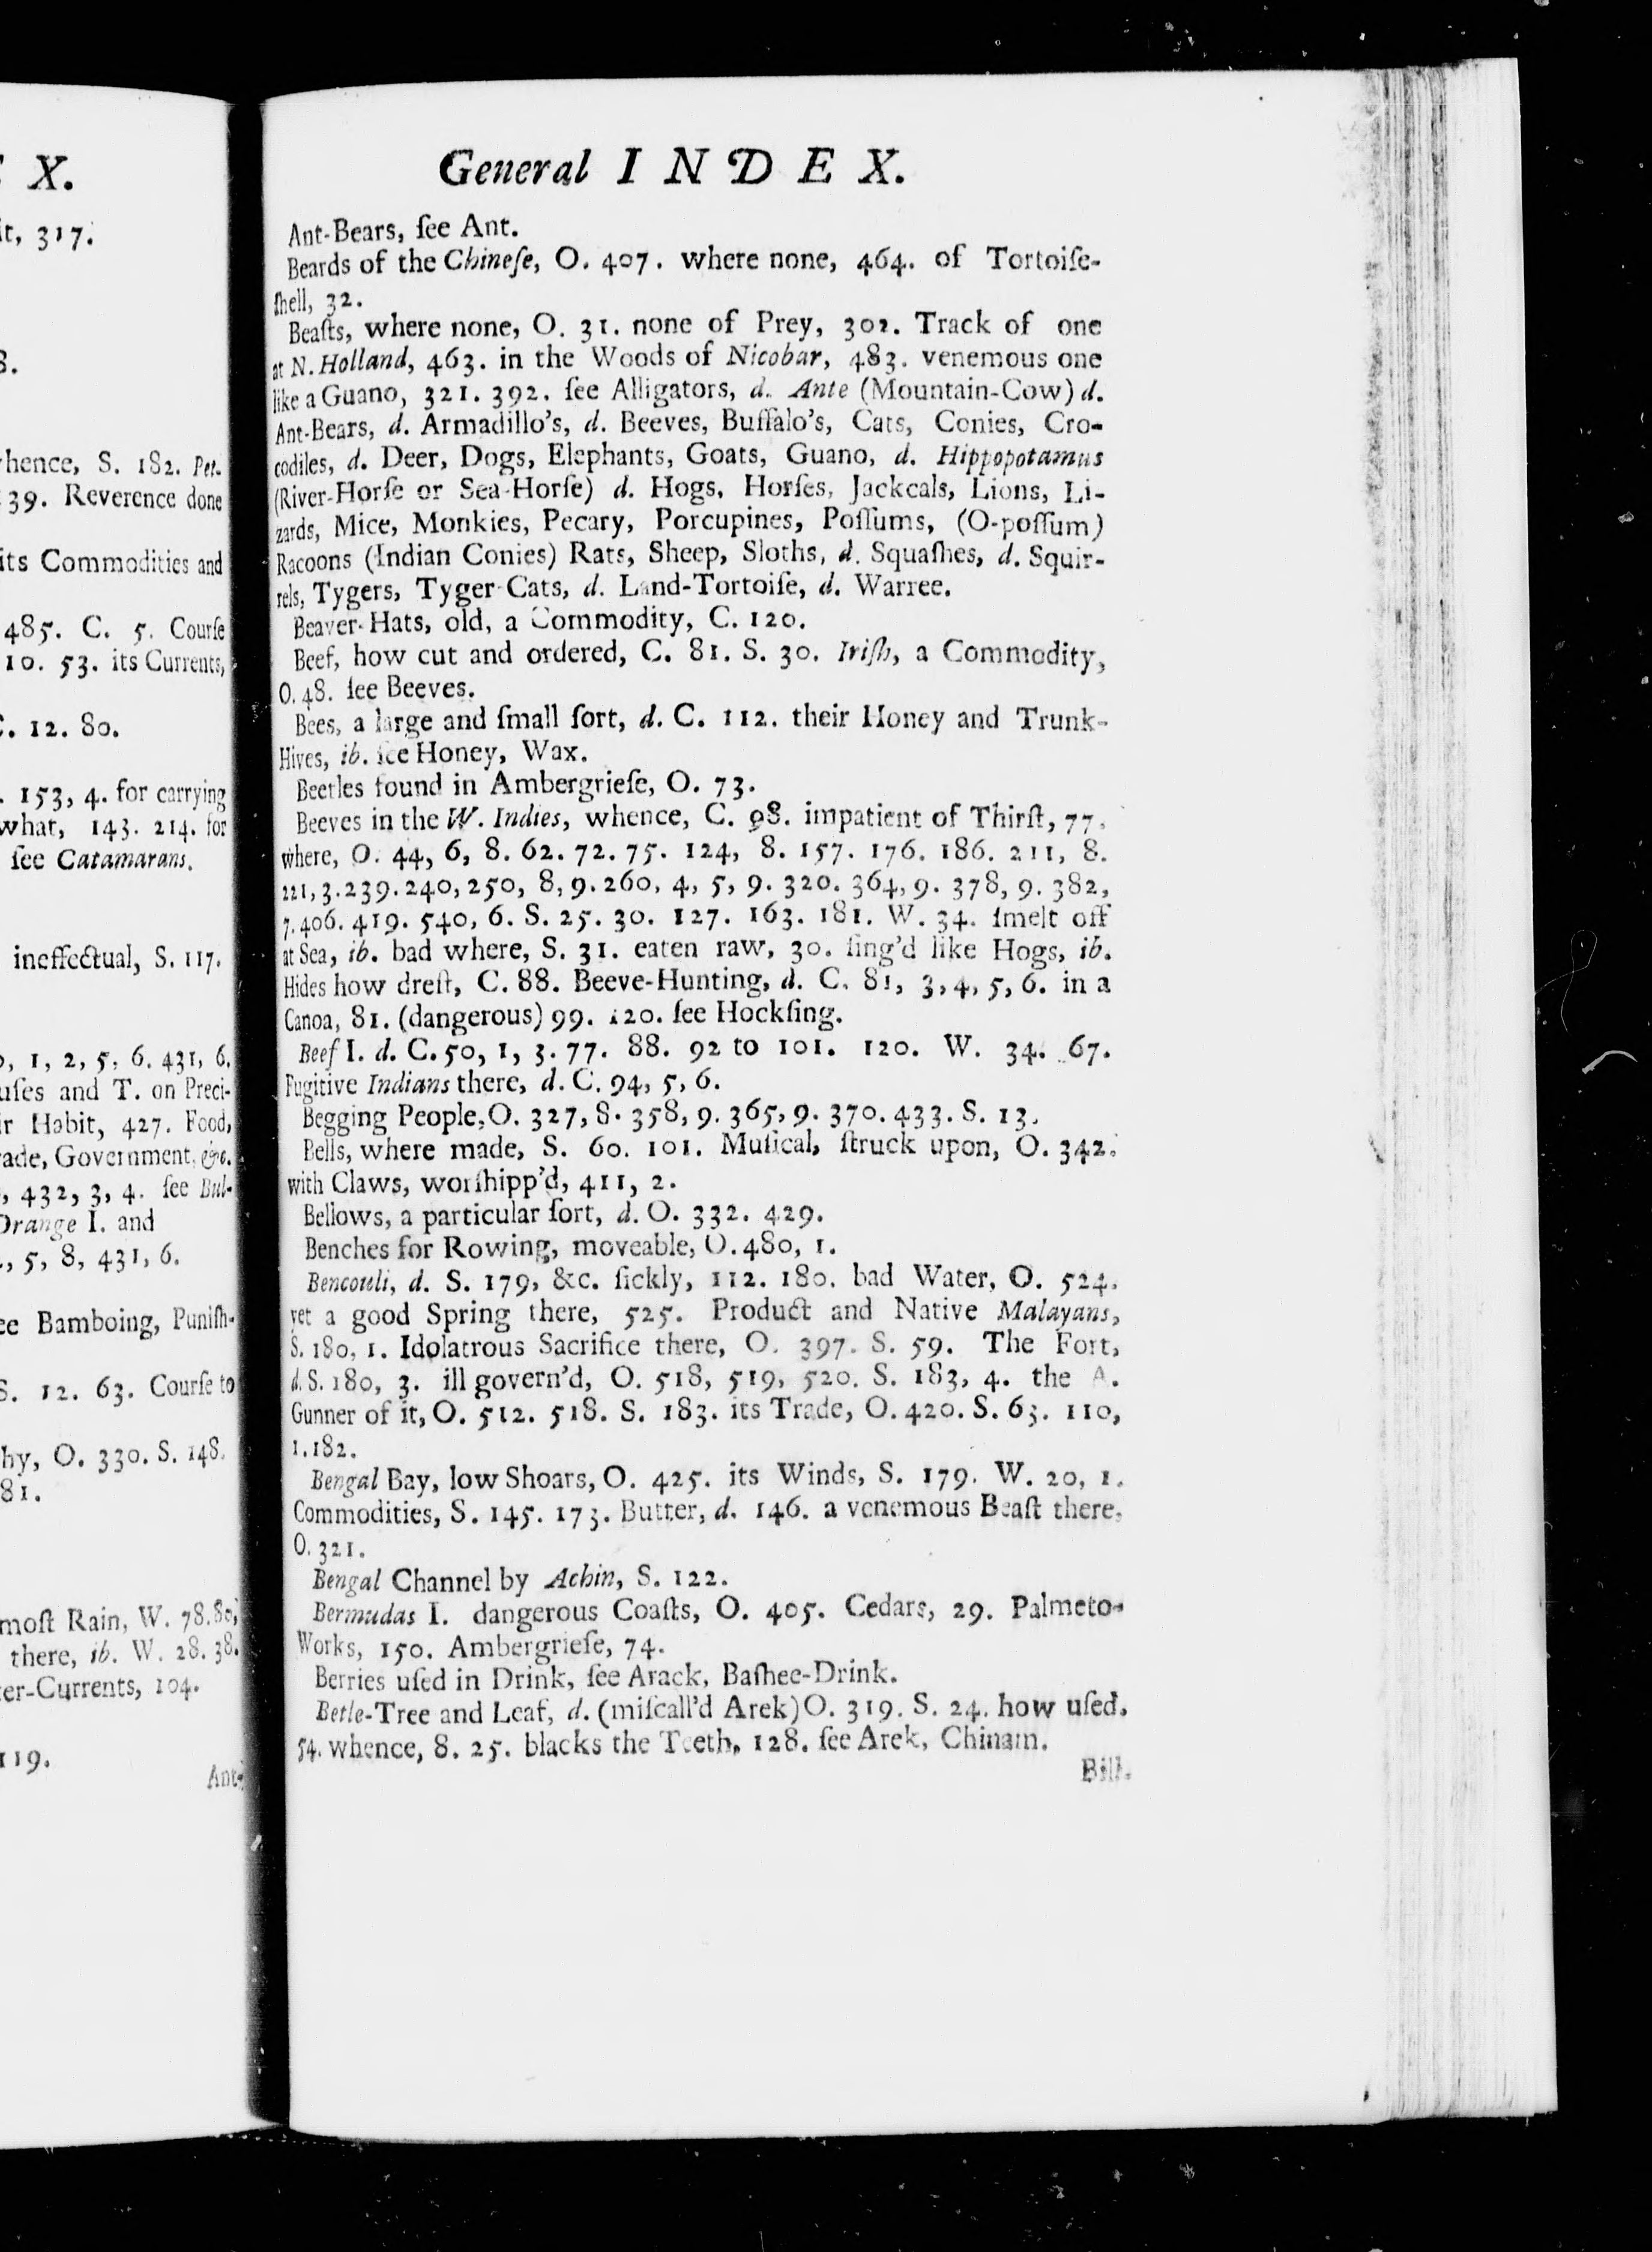 X.
it, 317.
8.
hence, S. 182. Pet-
39. Reverence done
its Commodities and
485. C. 5. Courſe
10. 53. its Currents,
C. 12. 80.
153, 4. for carrying
what, 143. 214. for
ſee Catamarans.
ineffectual, S. 117.
1, 2, 5, 6. 431, 6.
uſes and T. on Preci-
ir Habit, 427. Food,
ade, Government, &c.
, 432, 3, 4. ſee Bul-
Orange I. and
, 5, 8, 431, 6.
ee Bamboing, Puniſh-
S. 12. 63. Courſe to
hy, O. 330. S. 148.
81.
moſt Rain, W. 78. 80,
there, ib. W. 28. 38.
er-Currents, 104.
119.
Ant-
General INDEX.
Ant-Bears, ſee Ant.
Beards of the Chineſe, O. 407. where none, 464. of Tortoiſe-
ſhell, 32.
Beaſts, where none, O. 31. none of Prey, 302. Track of one
at N. Holland, 463. in the Woods of Nicobar, 483. venemous one
like a Guano, 321. 392. ſee Alligators, d. Ante (Mountain-Cow) d.
Ant-Bears, d. Armadillo's, d. Beeves, Buffalo's, Cats, Conies, Cro-
codiles, d. Deer, Dogs, Elephants, Goats, Guano, d. Hippopotamus
(River-Horſe or Sea-Horſe) d. Hogs, Horſes, Jackcals, Lions, Li-
zards, Mice, Monkies, Pecary, Porcupines, Poſſums, (O-poſſum)
Racoons (Indian Conies) Rats, Sheep, Sloths, d. Squaſhes, d. Squir-
rels, Tygers, Tyger-Cats, d. Land-Tortoiſe, d. Warree.
Beaver-Hats, old, a Commodity, C. 120.
Beef, how cut and ordered, C. 81. S. 30. Iriſh, a Commodity,
O. 48. ſee Beeves.
Bees, a large and ſmall ſort, d. C. 112. their Honey and Trunk-
Hives, ib. ſee Honey, Wax.
Beetles found in Ambergrieſe, O. 73.
Beeves in the W. Indies, whence, C. 98. impatient of Thirſt, 77.
where, O. 44, 6, 8. 62. 72. 75. 124, 8. 157. 176. 186. 211, 8.
221, 3. 239. 240, 250, 8, 9. 260, 4, 5, 9. 320. 364, 9. 378, 9. 382,
7. 406. 419. 540, 6. S. 25. 30. 127. 163. 181. W. 34. ſmelt off
at Sea, ib. bad where, S. 31. eaten raw, 30. ſing'd like Hogs, ib.
Hides how dreſt, C. 88. Beeve-Hunting, d. C. 81, 3, 4, 5, 6. in a
Canoa, 81. (dangerous) 99. 120. ſee Hockſing.
Beef I. d. C. 50, 1, 3. 77. 88. 92 to 101. 120. W. 34. 67.
Fugitive Indians there, d. C. 94, 5, 6.
Begging People, O. 327, 8. 358, 9. 365, 9. 370. 433. S. 13.
Bells, where made, S. 60. 101. Muſical, ſtruck upon, O. 342.
with Claws, worſhipp'd, 411, 2.
Bellows, a particular ſort, d. O. 332. 429.
Benches for Rowing, moveable, O. 480, 1.
Bencouli, d. S. 179, &c. ſickly, 112. 180. bad Water, O. 524.
yet a good Spring there, 525. Product and Native Malayans,
S. 180, 1. Idolatrous Sacrifice there, O. 397. S. 59. The Fort,
d. S. 180, 3. ill govern'd, O. 518, 519, 520. S. 183, 4. the A.
Gunner of it, O. 512. 518. S. 183. its Trade, O. 420. S. 63. 110,
1. 182.
Bengal Bay, low Shoars, O. 425. its Winds, S. 179. W. 20, 1.
Commodities, S. 145. 173. Butter, d. 146. a venemous Beaſt there,
O. 321.
Bengal Channel by Achin, S. 122.
Bermudas I. dangerous Coaſts, O. 405. Cedars, 29. Palmeto-
Works, 150. Ambergrieſe, 74.
Berries uſed in Drink, ſee Arack, Baſhee-Drink.
Betle-Tree and Leaf, d. (miſcall'd Arek) O. 319. S. 24. how uſed,
54. whence, 8. 25. blacks the Teeth, 128. ſee Arek, Chinam.
Bill.